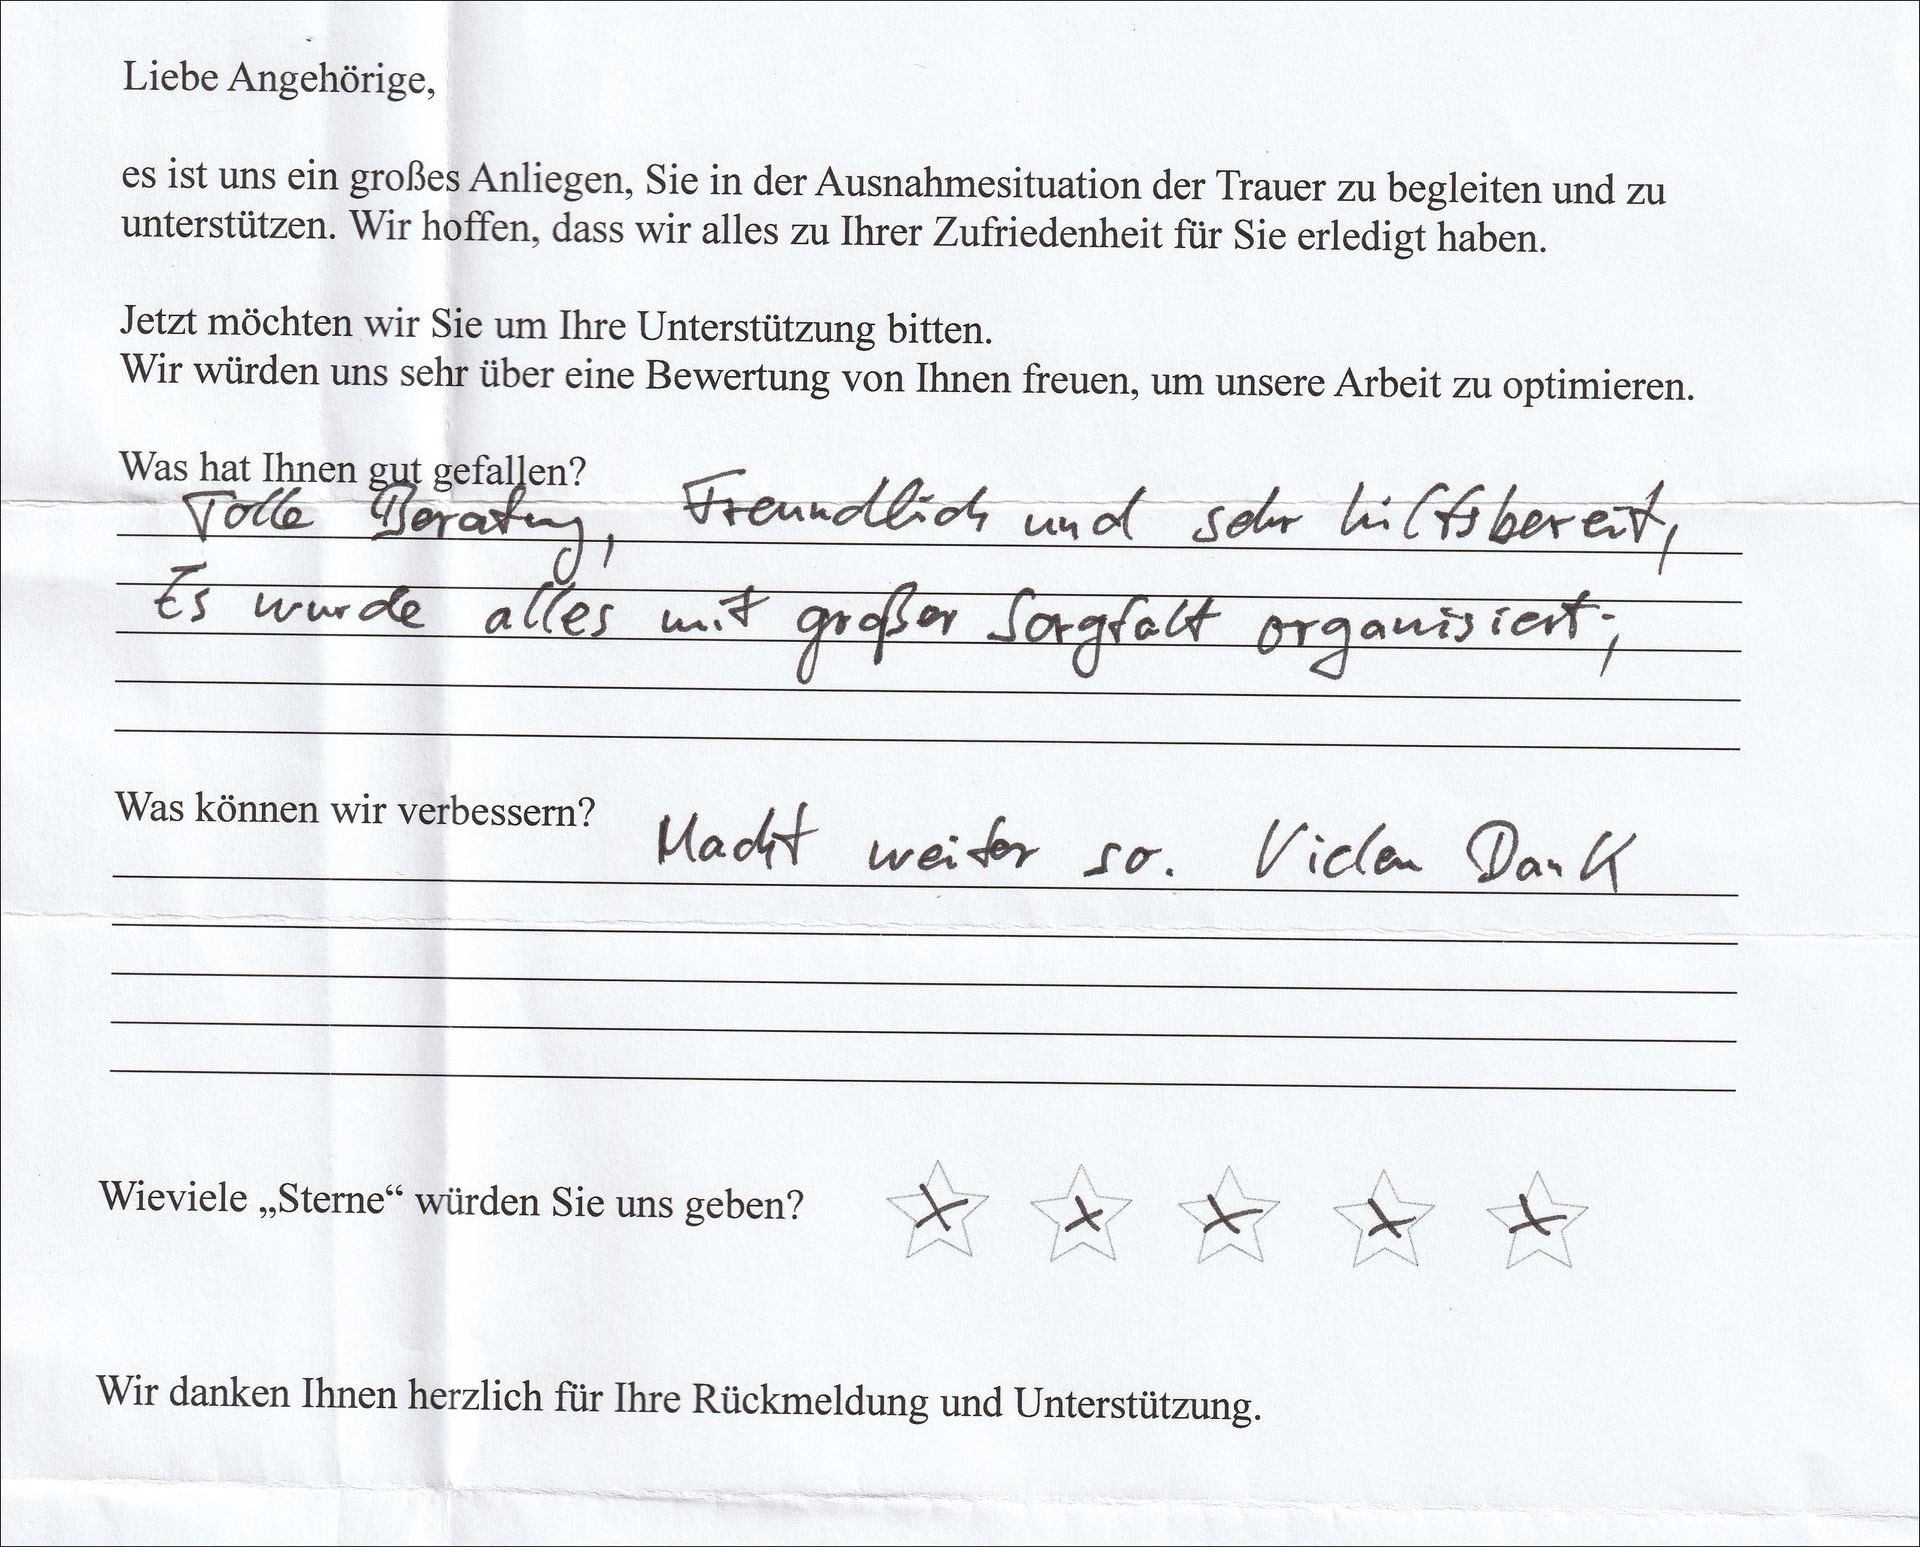 Liebe Angehörige,
es ist uns ein großes Anliegen, Sie in der Ausnahmesituation der Trauer zu begleiten und zu
unterstützen. Wir hoffen, dass wir alles zu Ihrer Zufriedenheit für Sie erledigt haben.
Jetzt möchten wir Sie um Ihre Unterstützung bitten.
Wir würden uns sehr über eine Bewertung von Ihnen freuen, um unsere Arbeit zu optimieren.
Was hat Ihnen gut gefallen?
Tolle Beratung, Freundlich und sehr hilfsbereit,
Es wurde alles mit großer Sorgfalt organisiert;
Was können wir verbessern? Macht weiter so. Vielen Dank
Wieviele „Sterne“ würden Sie uns geben?
Wir danken Ihnen herzlich für Ihre Rückmeldung und Unterstützung.